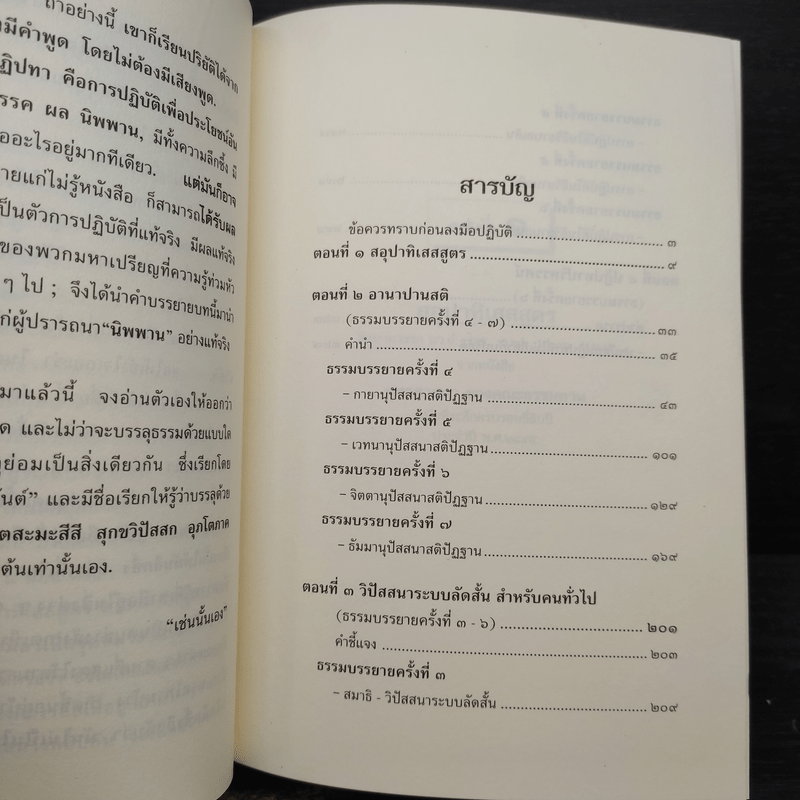 ถ้าอย่างนี้ เขาก็เรียนปริยัติได้จาก
มีคำพูด โดยไม่ต้องมีเสียงพูด.
ฏิปทา คือการปฏิบัติเพื่อประโยชน์อัน
รรค ผล นิพพาน, มีทั้งความลึกซึ้ง มี
ออะไรอยู่มากทีเดียว. แต่มันก็อาจ
ายแก่ไม่รู้หนังสือ ก็สามารถได้รับผล
เป็นตัวการปฏิบัติที่แท้จริง มีผลแท้จริง
ของพวกมหาเปรียญที่ความรู้ท่วมหัว
ๆ ไป ; จึงได้นำคำบรรยายบทนี้มานำ
ก่ผู้ปรารถนา“นิพพาน” อย่างแท้จริง
มาแล้วนี้ จงอ่านตัวเองให้ออกว่า
ด และไม่ว่าจะบรรลุธรรมด้วยแบบใด
ย่อมเป็นสิ่งเดียวกัน ซึ่งเรียกโดย
ันต์” และมีชื่อเรียกให้รู้ว่าบรรลุด้วย
ตสะมะสีสี สุกขวิปัสสก อุภโตภาค
ต้นเท่านั้นเอง.
“เช่นนั้นเอง”
สารบัญ
ข้อควรทราบก่อนลงมือปฏิบัติ ๓
ตอนที่ ๑ สอุปาทิเสสสูตร ๙
ตอนที่ ๒ อานาปานสติ
(ธรรมบรรยายครั้งที่ ๔ - ๗) ๓๓
คำนำ ๓๕
ธรรมบรรยายครั้งที่ ๔
– กายานุปัสสนาสติปัฏฐาน ๔๓
ธรรมบรรยายครั้งที่ ๕
– เวทนานุปัสสนาสติปัฏฐาน ๑๐๑
ธรรมบรรยายครั้งที่ ๖
– จิตตานุปัสสนาสติปัฏฐาน ๑๒๙
ธรรมบรรยายครั้งที่ ๗
– ธัมมานุปัสสนาสติปัฏฐาน ๑๖๙
ตอนที่ ๓ วิปัสสนาระบบลัดสั้น สำหรับคนทั่วไป
(ธรรมบรรยายครั้งที่ ๓ - ๖) ๒๐๑
คำชี้แจง ๒๐๓
ธรรมบรรยายครั้งที่ ๓
– สมาธิ - วิปัสสนาระบบลัดสั้น ๒๐๙